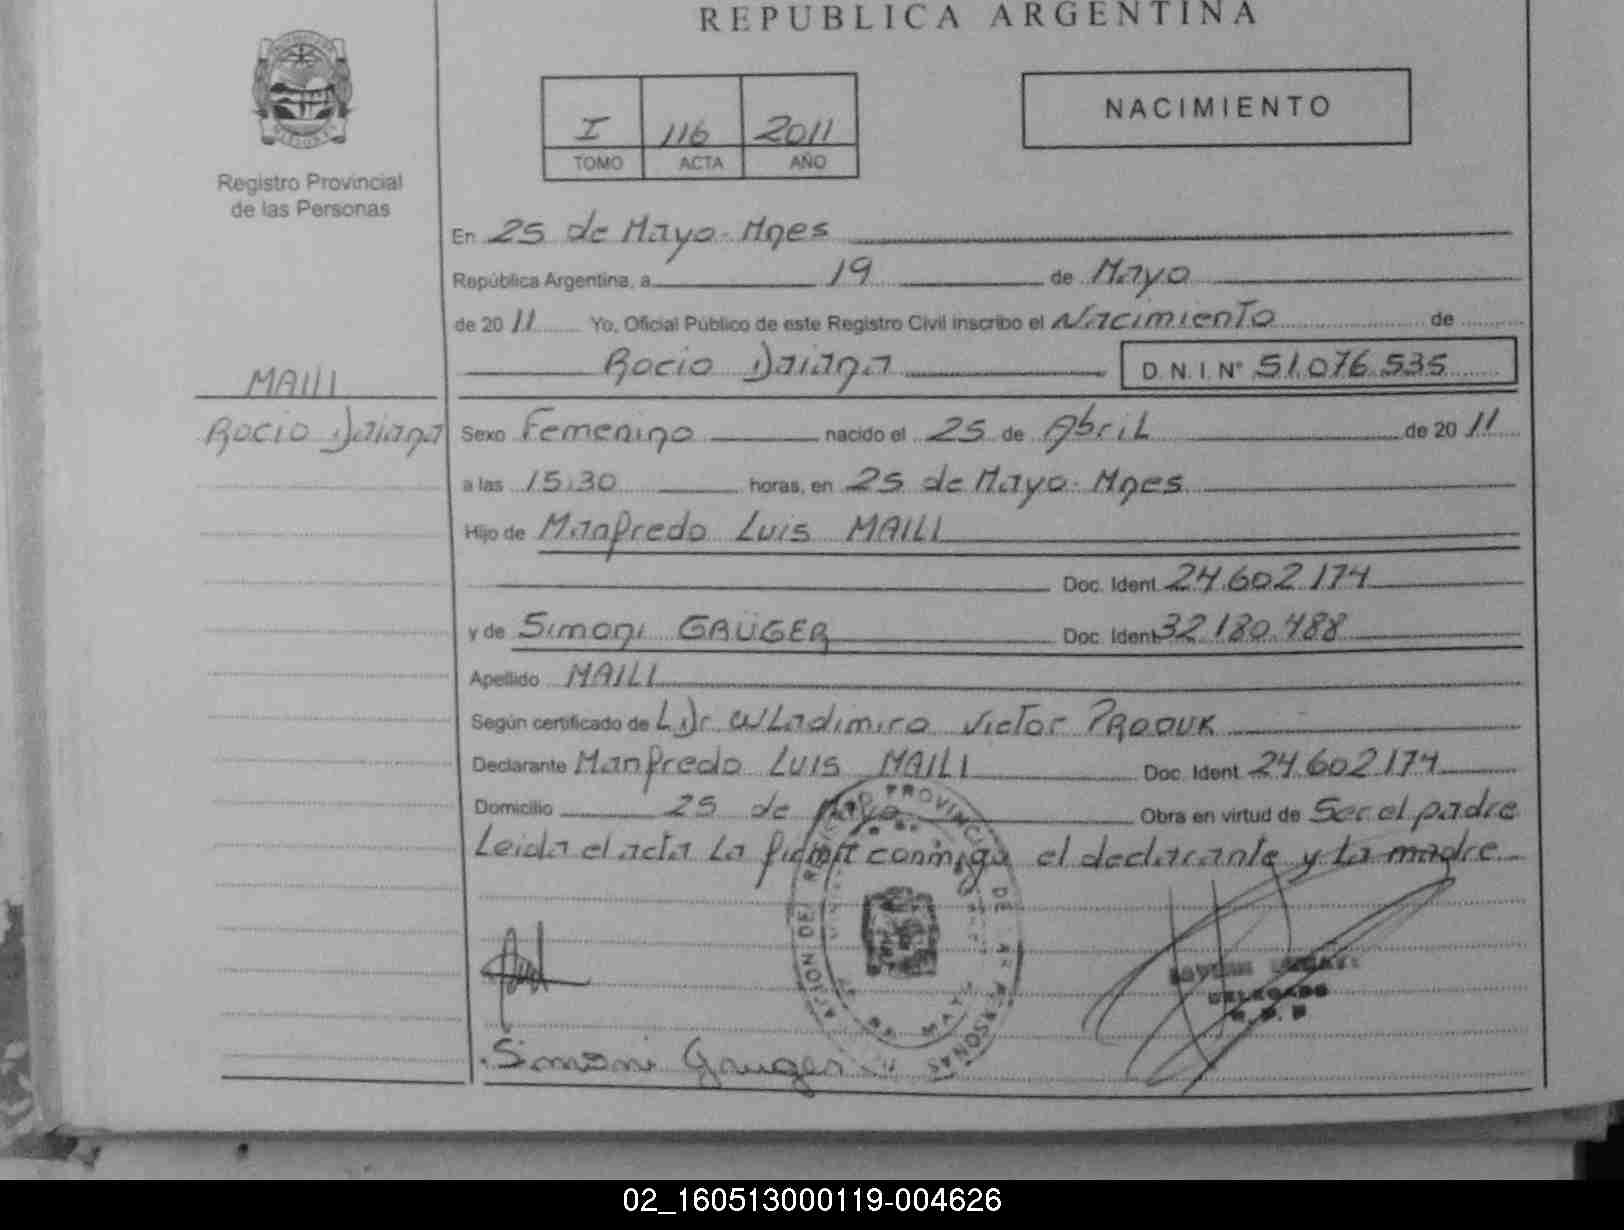 REPUBLICA ARGENTINA
Registro Provincial
de las Personas
I 116 2011
TOMO ACTA AÑO
NACIMIENTO
En 25 de Mayo-Mnes
República Argentina, a 19 de Mayo
de 2011 Yo, Oficial Público de este Registro Civil inscribo el Nacimiento de
Rocio Daiana D.N.I.Nº 51.076.535
MAILI
Rocio Daiana
Sexo Femenino nacido el 25 de Abril de 2011
a las 15:30 horas, en 25 de Mayo-Mnes
Hijo de Manfredo Luis MAILI
Doc. Ident. 24.602.174
y de Simoni GAÜGER Doc. Ident. 32.180.488
Apellido MAILI
Según certificado de L Dr. Wladimiro Victor PRODUK
Declarante Manfredo Luis MAILI Doc. Ident. 24.602.174
Domicilio 25 de Mayo Obra en virtud de Ser el padre
Leida el acta La firma conmigo el declarante y La madre
PROVINCIAL DE LAS PERSONAS
DELEGADO
Simoni Gauger
02_160513000119-004626